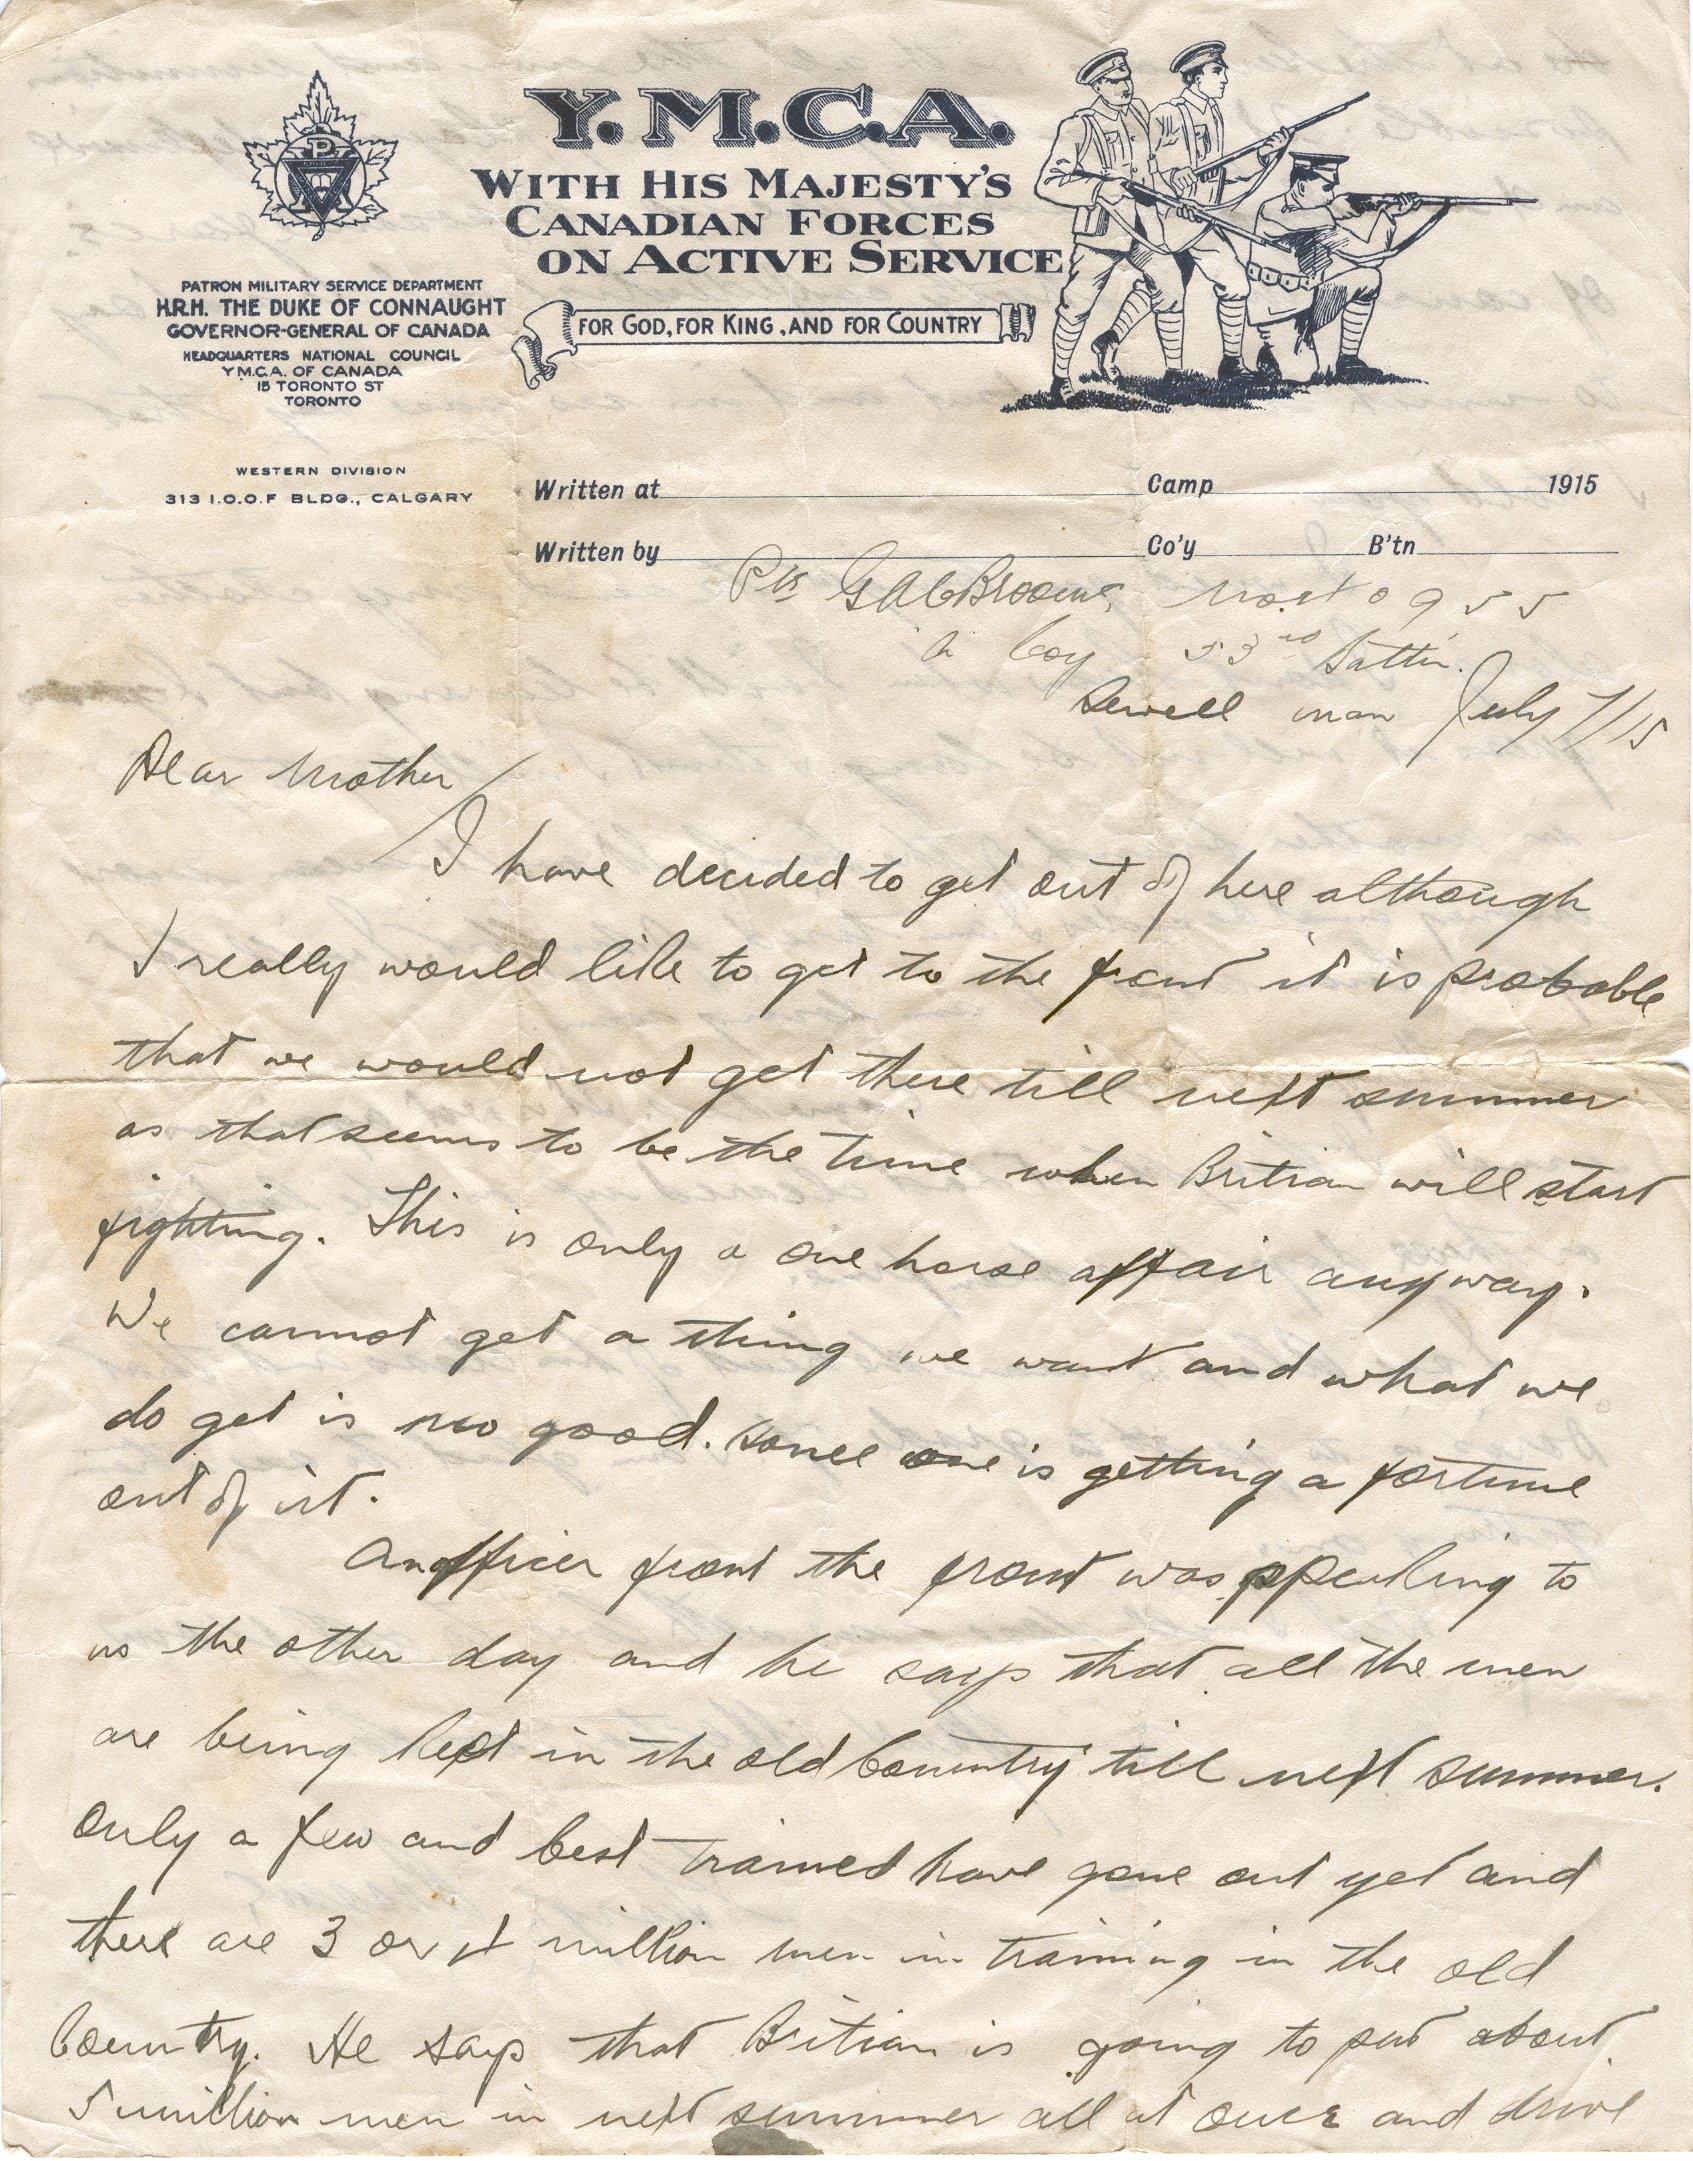 Y.M.C.A.
WITH HIS MAJESTY'S
CANADIAN FORCES
ON ACTIVE SERVICE
FOR GOD, FOR KING, AND FOR COUNTRY
PATRON MILITARY SERVICE DEPARTMENT
H.R.H. THE DUKE OF CONNAUGHT
GOVERNOR-GENERAL OF CANADA
HEADQUARTERS NATIONAL COUNCIL
Y.M.C.A. OF CANADA
15 TORONTO ST
TORONTO
WESTERN DIVISION
313 I.O.O.F BLDG., CALGARY
Written at Camp 1915
Written by Co'y B'tn
Pte
A Coy 53rd Battn.
Sewell man July 7/15
Dear Mother
I have decided to get out of here although
I really would like to get to the front it is probable
that we would not get there till next summer
as that seems to be the time when Britian will start
fighting. This is only a one horse affair anyway.
We cannot get a thing we want and what we
do get is no good. Some one is getting a fortune
out of it.
An officer from the front was speaking to
us the other day and he says that all the men
are being kept in the old Country till next summer.
Only a few and best trained have gone out yet and
there are 3 or 4 million men in training in the old
Country. He says that Britian is going to put about
5 million men in next summer all at once and drive